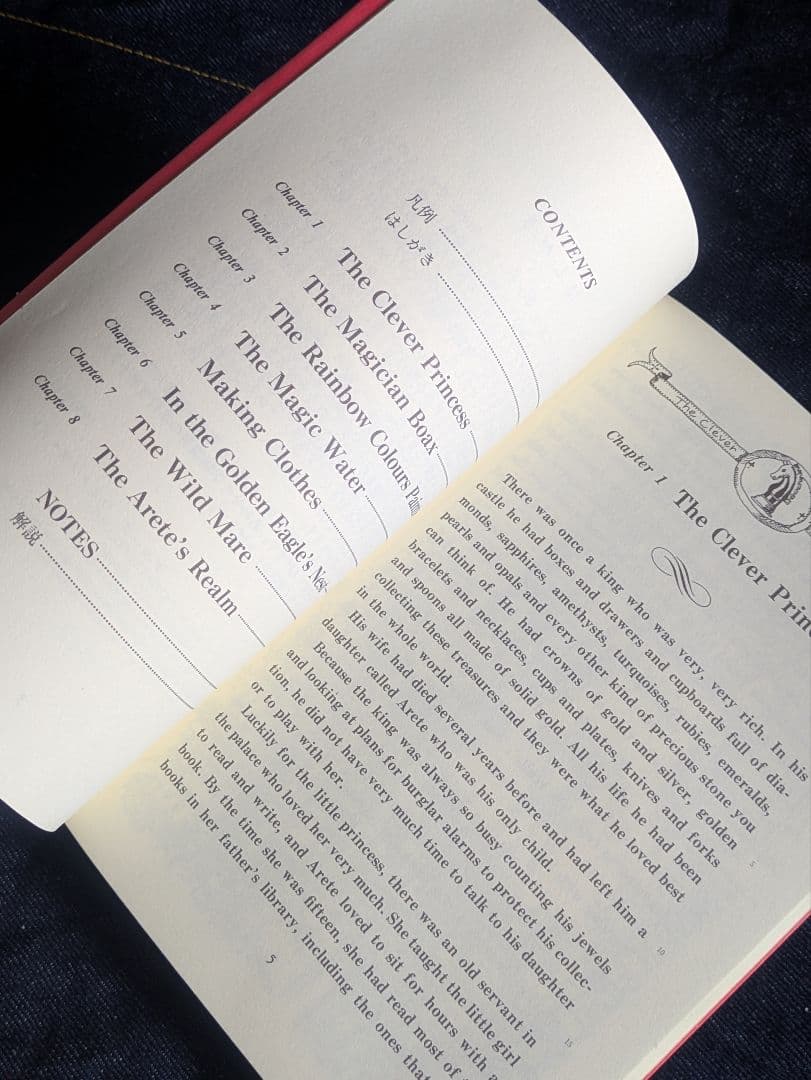 CONTENTS
凡例
はしがき
Chapter 1 The Clever Princess
Chapter 2 The Magician Boax
Chapter 3 The Rainbow Colours
Chapter 4 The Magic Water
Chapter 5 Making Clothes
Chapter 6 In the Golden Eagle's Nest
Chapter 7 The Wild Mare
Chapter 8 The Arete's Realm
NOTES
解説
The Clever
Chapter 1 The Clever Prin
There was once a king who was very, very rich. In his
castle he had boxes and drawers and cupboards full of dia-
monds, sapphires, amethysts, turquoises, rubies, emeralds,
pearls and opals and every other kind of precious stone you
can think of. He had crowns of gold and silver, golden
bracelets and necklaces, cups and plates, knives and forks
and spoons all made of solid gold. All his life he had been
collecting these treasures and they were what he loved best
in the whole world.
His wife had died several years before and had left him a
daughter called Arete who was his only child.
Because the king was always so busy counting his jewels
and looking at plans for burglar alarms to protect his collec-
tion, he did not have very much time to talk to his daughter
or to play with her.
Luckily for the little princess, there was an old servant in
the palace who loved her very much. She taught the little girl
to read and write, and Arete loved to sit for hours with a
book. By the time she was fifteen, she had read most of
books in her father's library, including the ones that
5
10
15
5